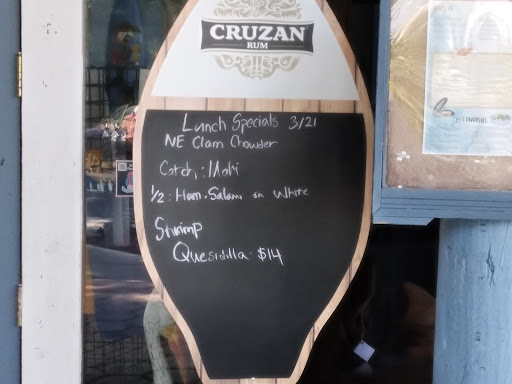 CRUZAN
RUM
Lunch Specials 3/21
NE Clam Chowder
Catch: Mahi
1/2: Ham-Salami on White
Shrimp
Quesidilla $14